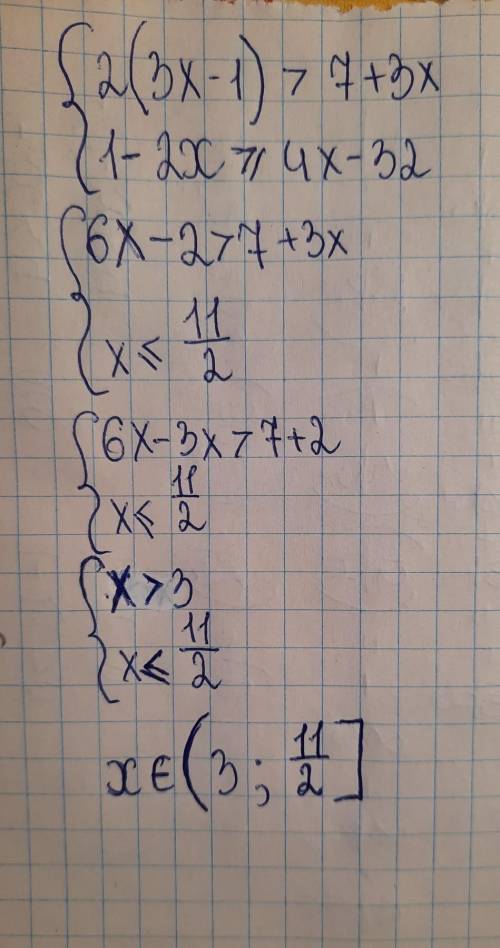 { 2(3x-1) > 7+3x
1-2x ⩾ 4x-32
{ 6x-2>7+3x
x ≤ 11/2
{ 6x-3x>7+2
x ≤ 11/2
{ x>3
x ≤ 11/2
x ∈ (3; 11/2]